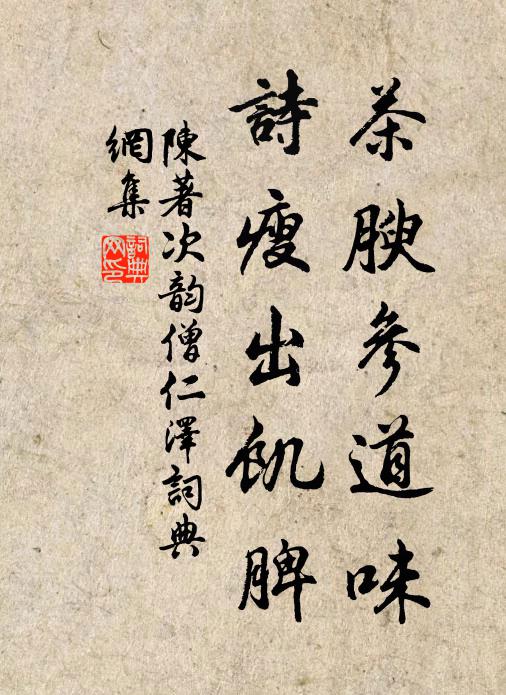 茶腴參道味
詩瘦出飢脾
陳著次韵僧仁澤詞典
網集
詞典
网印